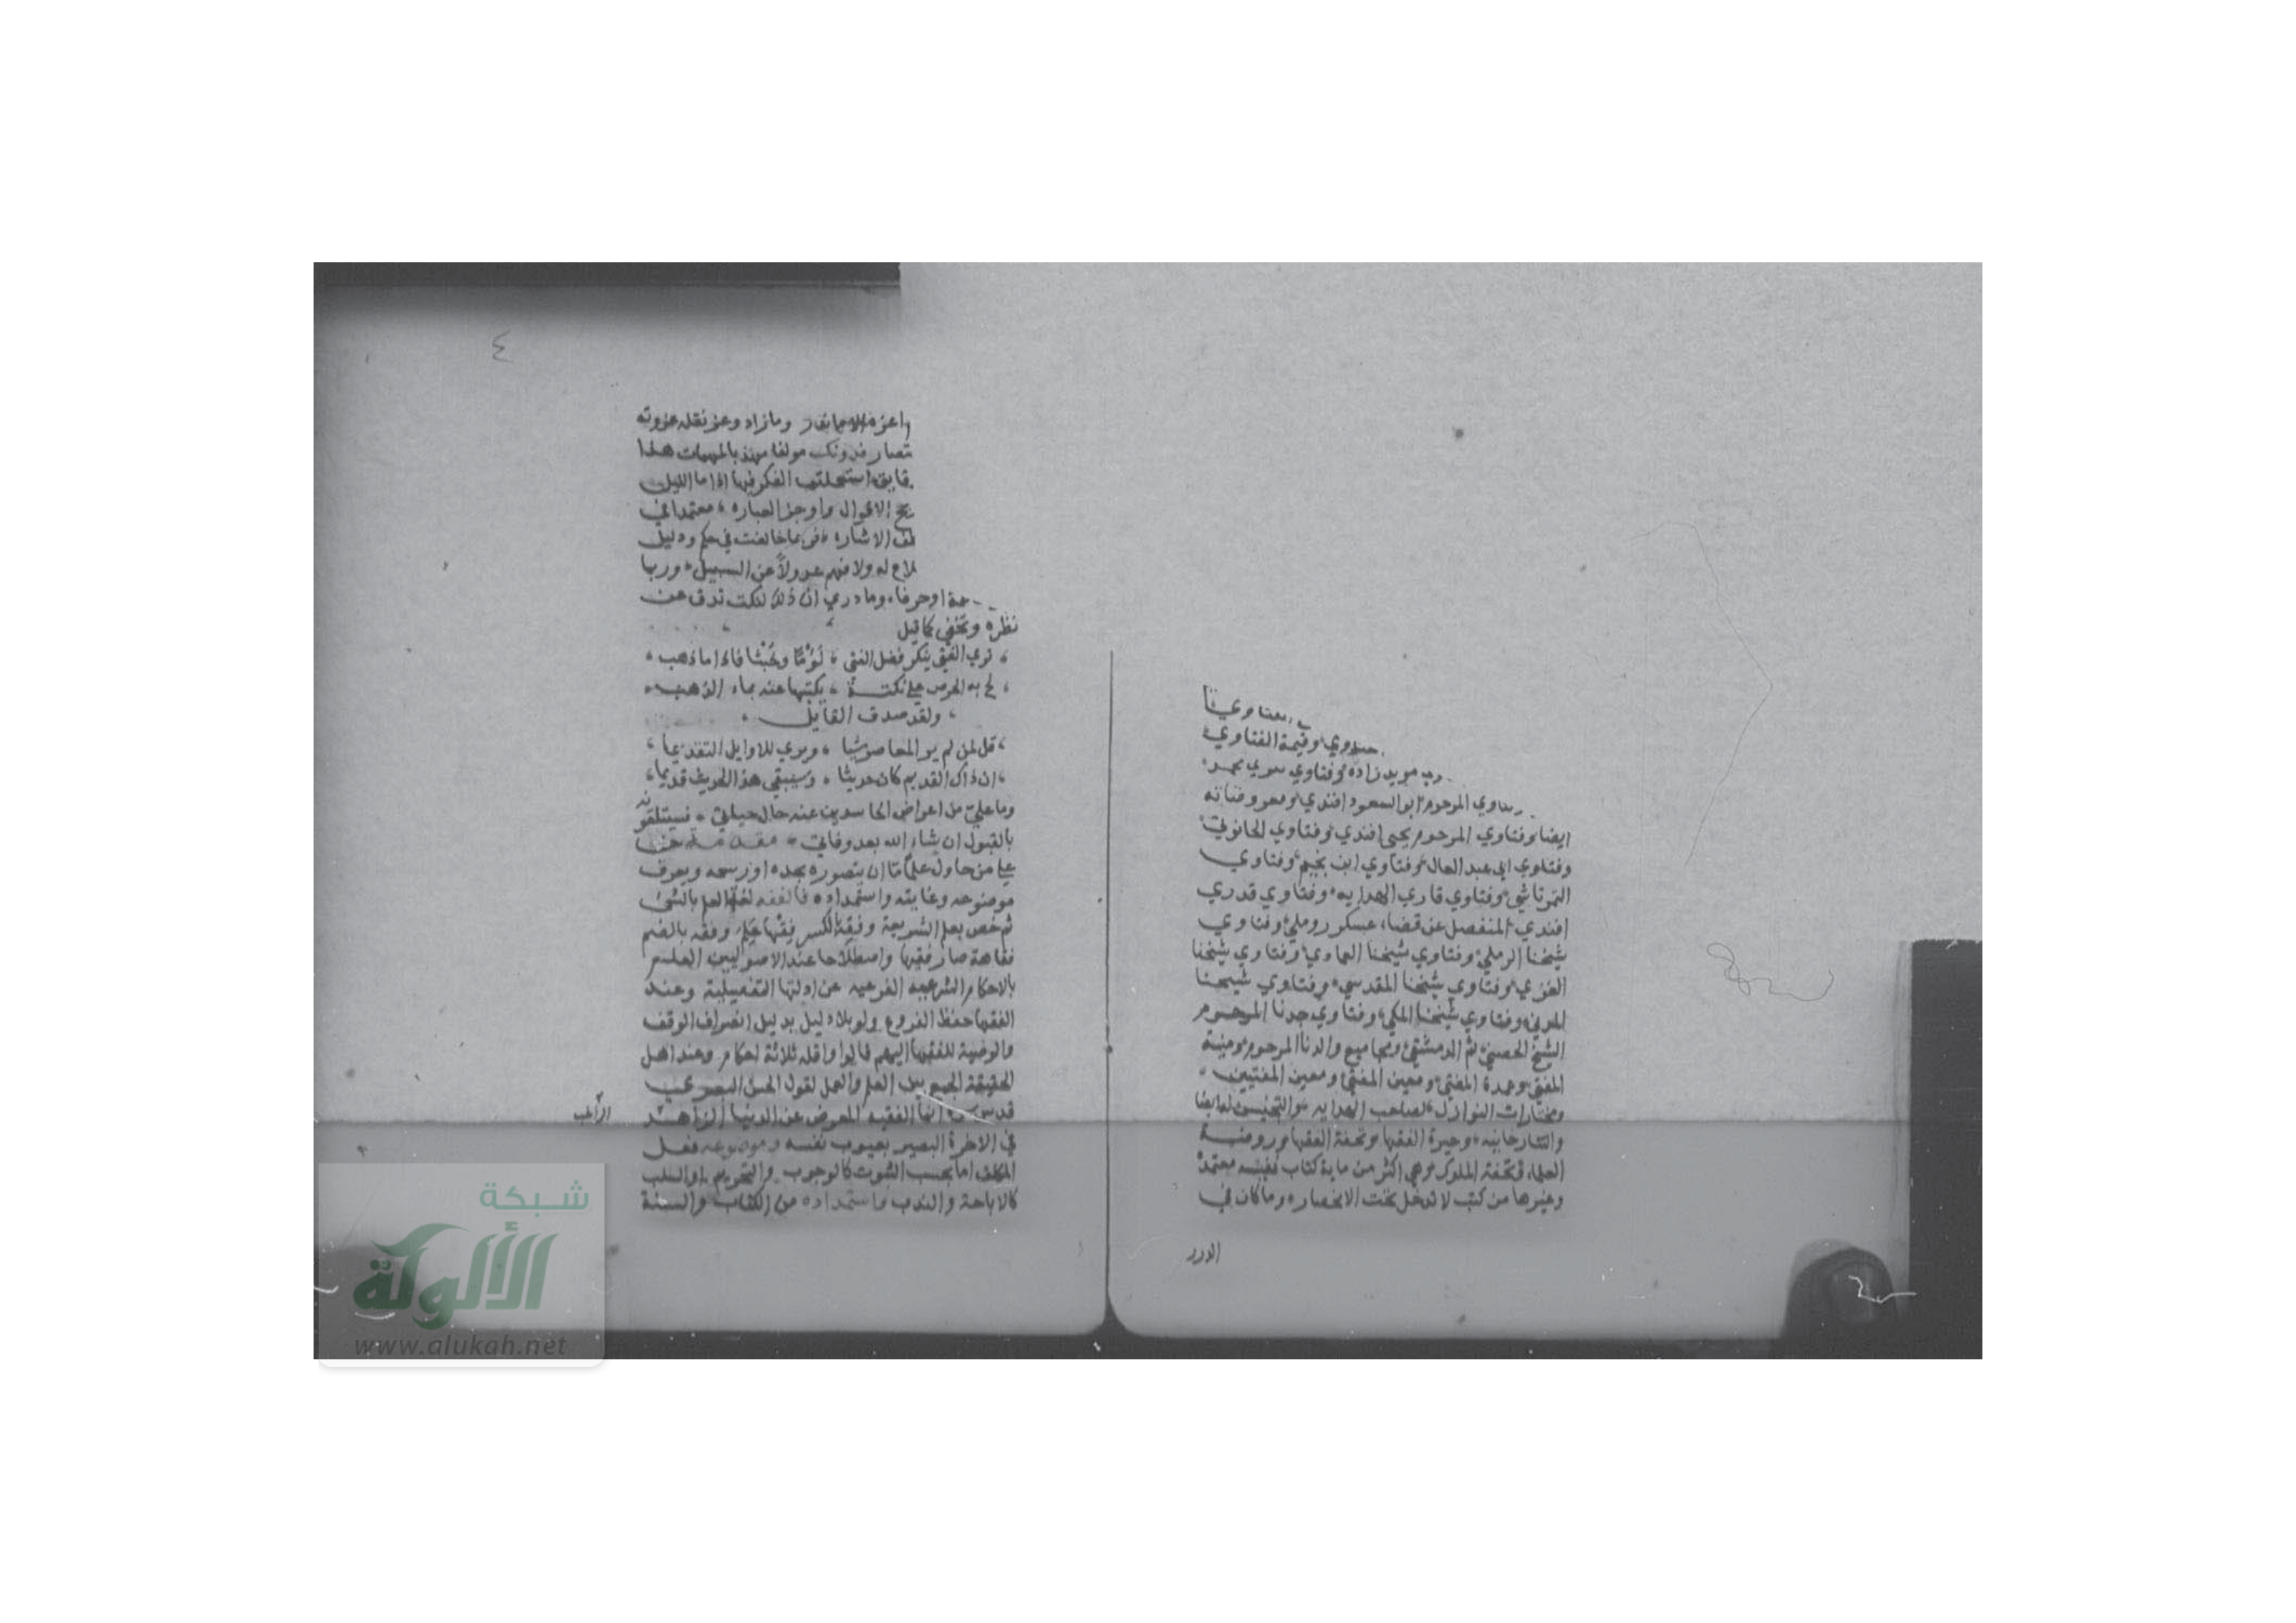 الفتاوي
وقيمة الفتاوي
مويد زاده وفتاوي
المرحوم ابو السعود افندي ومعروضاته
ايضا وفتاوي المرحوم يحيى افندي وفتاوي الحانوتي
وفتاوي ابي عبد العال وفتاوي ابن نجيم وفتاوي
التمرتاشي وفتاوي قاري الهدايه وفتاوي قدري
افندي المنفصل عن قضاء عسكر روملي وفتاوي
شيخنا الرملي وفتاوي شيخنا العمادي وفتاوي شيخنا
الغزي وفتاوي شيخنا المقدسي وفتاوي شيخنا
وفتاوي شيخنا المكي وفتاوي جدنا المرحوم
الشيخ الحصني ثم الدمشقي ومجاميع والدنا المرحوم ومنية
المفتي وعمدة المفتي ومعين المفتي ومعين المفتيين
ومختارات النوازل لصاحب الهدايه والتجنيس له ايضا
والتتارخانيه وحيرة الفقها وتحفة الفقها وروضة
العلماء وتحفة الملوك وهي اكثر من ماية كتاب معتمد
وغيرها من كتب لا تدخل تحت الانحصار وما كان في
الدرر
٤
وما زاد وعز نقله عزوته
فدونك مولفا مهذبا لمهمات هذا
استعملت الفكر فيها اذا ما الليل
الاقوال واوجز العباره معتمدا في
الاشاره فربما خالفت في حكم ودليل
له ولا فهم عدولا عن السبيل وربما
او حرفا وما دري ان ذلك لنكت تدق عن
نظره وتخفي كما قيل
تري الفتي ينكر فضل الفتي لؤما وخبثا فاذا ما ذهب
لج به الحرص علي نكتة يكتبها عنه بماء الذهب
ولقد صدق القايل
قل لمن لم ير المعاصر شيا ويري للاوايل التقديما
ان ذاك القديم كان حديثا وسيبقي هذا الحديث قديما
وما علي من اعراض الحاسدين عنه حال حياتي فسيتلقونه
بالقبول ان شاء الله بعد وفاتي مقدمة حق
علي من حاول علما ما ان يتصوره بحده او رسمه ويعرف
موضوعه وغايته واستمداده فالفقه لغة العلم بالشي
ثم خص بعلم الشريعة وفقه بالكسر فقها علم وفقه بالضم
فقاهة صار فقيها واصطلاحا عند الاصوليين العلم
بالاحكام الشرعيه الفرعيه عن ادلتها التفصيلية وعند
الفقها حفظ الفروع ولو بلا دليل بدليل انصراف الوقف
والوصية للفقها اليهم قالوا واقله ثلاثة احكام وعند اهل
الحقيقة الجمع بين العلم والعمل لقول الحسن البصري
انما الفقيه المعرض عن الدنيا الزاهد
الراغب
في الاخرة البصير بعيوب نفسه وموضوعه فعل
المكلف اما بحسب الثبوت كالوجوب والتحريم او السلب
كالاباحة والندب واستمداده من الكتاب والسنة
شبكة
الألوكة
www.alukah.net